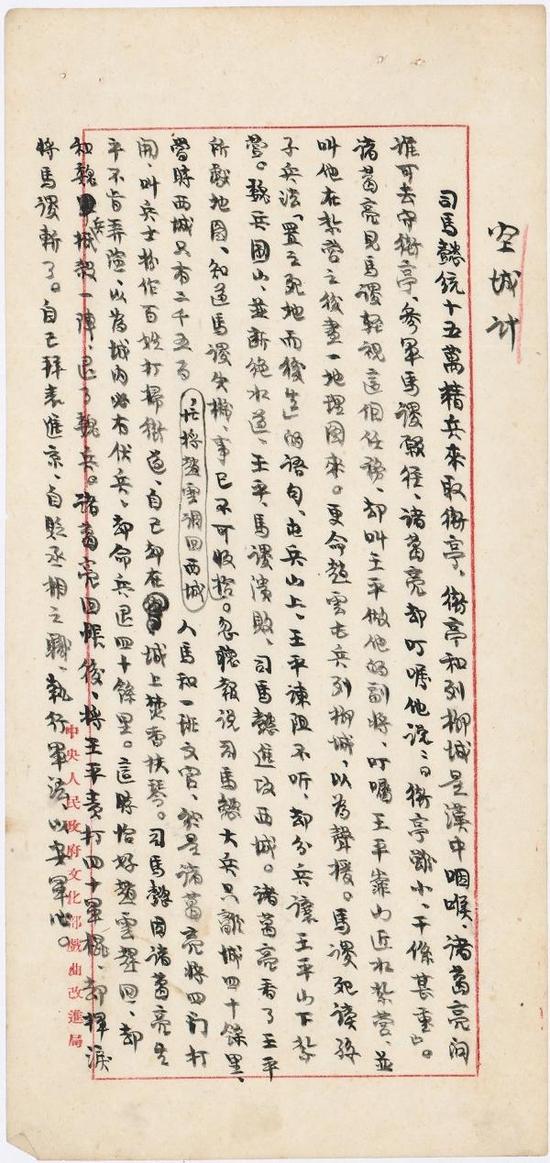 空城计
司馬懿統十五萬精兵来取街亭、街亭和列柳城是漢中咽喉、諸葛亮问
谁可去守街亭、参军馬谡願往、諸葛亮却叮嘱他说：“街亭雖小、干係甚重”。
諸葛亮見馬谡轻視這個任務、却叫王平做他的副将、叮囑王平靠山近水紮营、並
叫他在紮营之後畫一地理图来。更命趙雲屯兵列柳城、以為聲援。馬谡死读孫
子兵法「置之死地而後生」的语句、屯兵山上、王平谏阻不听、却分兵讓王平山下紮
营。魏兵困山、並断绝水道、王平、馬谡溃敗、司馬懿進攻西城。諸葛亮看了王平
所献地图、知道馬谡失機、事已不可收拾。忽聽報说司馬懿大兵只離城四十餘里、
當時西城只有二千五百
忙将趙雲调回西城
人馬和一班文官、於是諸葛亮将四门打
開、叫兵士扮作百姓打掃街道、自己却在城上焚香扶琴。司馬懿因諸葛亮生
平不肯弄險、以為城内必有伏兵、却命兵退四十餘里。這時恰好趙雲趕回、却
和魏兵掩殺一陣、退了魏兵。諸葛亮回帳後、将王平责打四十軍棍、却揮淚
将馬谡斬了。自己拜表進京、自貶丞相之職、執行軍法、以安軍心。
中央人民政府文化部戲曲改進局